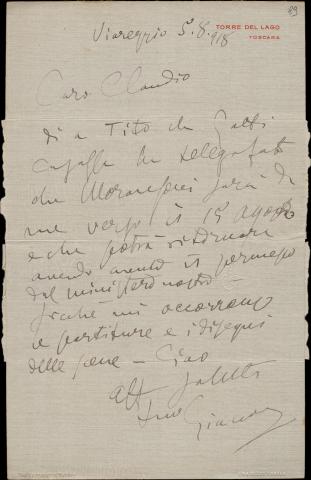 89
TORRE DEL LAGO
TOSCANA
Viareggio 5.8.918
Caro Claudio
di a Tito che Gatti
Casazza ha telegrafato
che Moranzoni sarà da
me verso il 15 agosto
e che potrà ritornare
avendo avuto il permesso
dal ministero nostro
sicché mi occorrono
le partiture e i disegni
delle scene – Ciao
aff saluti
tuo Giacomo